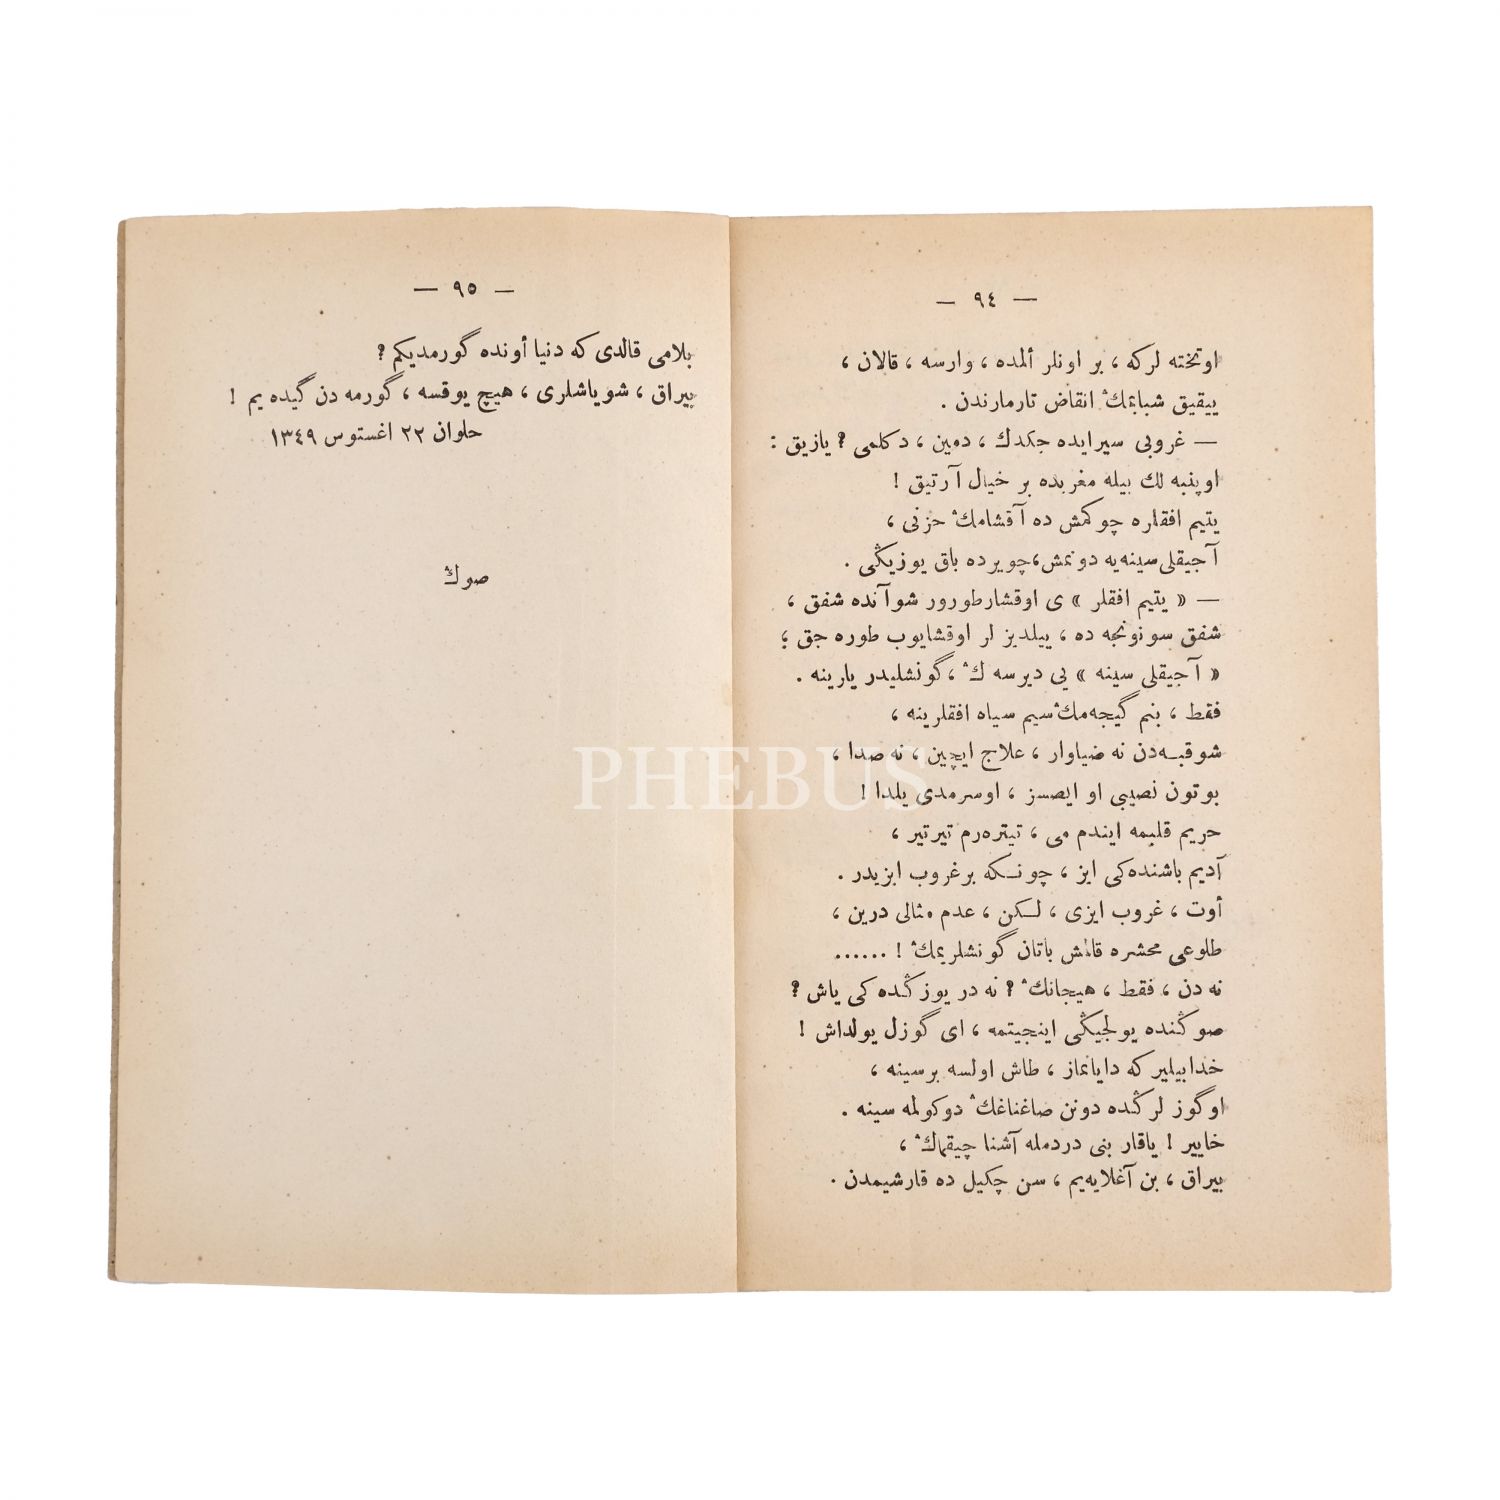 — ٩٤ —
اوتخته لركه ، بر اونلر ألمده ، وارسه ، قالان ،
ييقيق شبابمك انقاض تارمارندن .
— غروبى سيرايده جكدك ، دمين ، دكلمى ؟ يازيق :
اوپنبه لك بيله مغربده بر خيال آرتيق !
يتيم افقلره چوكمش ده آقشامك حزنى ،
آجيقلى سينه يه دونمش، چويرده باق يوزيڭى .
— « يتيم افقلر » ى اوقشارطورور شوآنده شفق ،
شفق سونونجه ده ، ييلديز لر اوقشايوب طوره جق ؛
« آجيقلى سينه » يى ديرسه ك ، گونشليدر يارينه .
فقط ، بنم گيجه مك سيم سياه افقلرينه ،
شوقبه دن نه ضياوار ، علاج ايچين ، نه صدا ،
بوتون نصيبى او ايصسز ، اوسرمدى يلدا !
حريم قلبمه ايندم مى ، تيتره رم تيرتير ،
آديم باشنده كى ايز ، چونكه برغروب ايزيدر .
أوت ، غروب ايزى ، لكن ، عدم مثالى درين ،
طلوعى محشره قالمش باتان گونشلريمك ! ......
نه دن ، فقط ، هيجانك ؟ نه در يوزڭده كى ياش ؟
صوڭنده يولجيڭى اينجيتمه ، اى گوزل يولداش !
خدابيلير كه دايانماز ، طاش اولسه برسينه ،
اوگوز لرڭده دونن صاغناغك دوكولمه سينه .
خايير ! ياقار بنى دردمله آشنا چيقماك ،
بيراق ، بن آغلايه يم ، سن چكيل ده قارشيمدن .
— ٩٥ —
بلامى قالدى كه دنيا أونده گورمديكم ؟
بيراق ، شوياشلرى ، هيچ يوقسه ، گورمه دن گيده يم !
حلوان ٢٢ اغستوس ١٣٤٩
صوك
PHEBUS